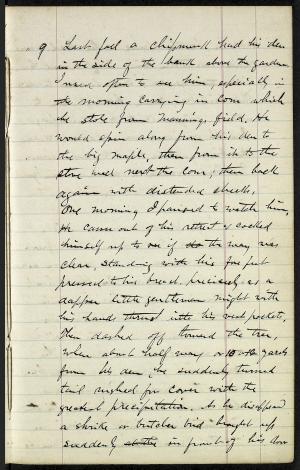 9 Last fall a chipmunk had his den
in the side of the bank above the garden
I used often to see him, especially in
the morning carrying in corn which
he stole from Mannings field. He
would spin along from his den to
the big maple, then from it to the
stone wall next the corn; then back
again with distended cheeks.
One morning I paused to watch him,
He came out of his retreat & cocked
himself up to see if the way was
clear, standing with his fore feet
pressed to his breast, precisely as a
dapper little gentleman might with
his hands thrust into his vest pockets,
Then dashed off toward the tree,
when about half way or 10 yards
from his den, he suddenly turned
tail rushed for cover with the
greatest precipitation. As he disappeared
a shrike or butcher bird brought up
suddenly in front of his door